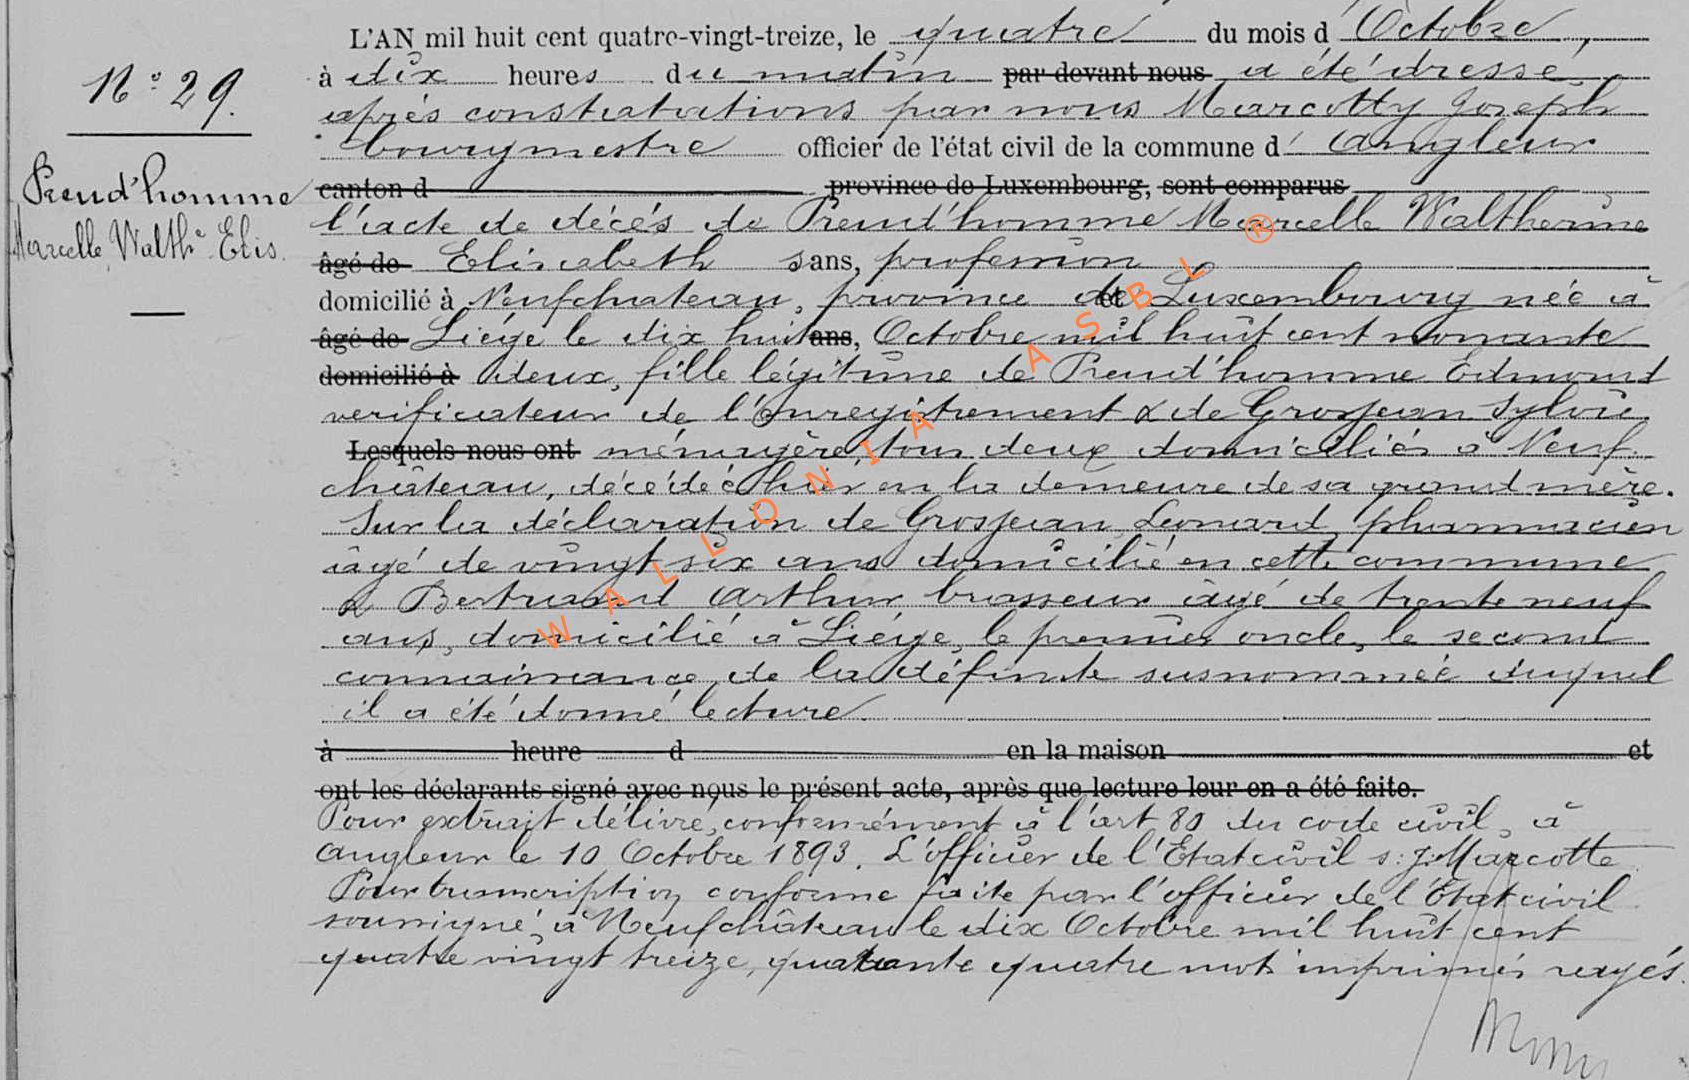 N° 29.
Preud'homme
Marcelle Walth^e Elis.
L'AN mil huit cent quatre-vingt-treize, le quatre du mois d'Octobre,
à dix heures du matin par devant nous a été dressé
après constatations par nous Marcotty Joseph
bourgmestre officier de l'état civil de la commune d'Angleur
canton d province de Luxembourg, sont comparus
l'acte de décés de Preud'homme Marcelle Waltherine
âgé de Elisabeth sans, profession
domicilié à Neufchateau, province de Luxembourg née à
âgé de Liége le dix huit ans, Octobre mil huit cent nonante
domicilié à deux, fille légitime de Preud'homme Edmond
verificateur de l'enregistrement & de Grosjean Sylvie
Lesquels nous ont ménagère, tous deux domiciliés à Neuf
château, décédée hier en la demeure de sa grand mère.
Sur la déclaration de Grosjean Leonard, pharmacien
âgé de vingt six ans domicilié en cette commune
& Bertrand Arthur brasseur âgé de trente neuf
ans, domicilié à Liége, le premier oncle, le second
connaissance de la défunte susnommée duquel
il a été donné lecture.
à heure d en la maison et
ont les déclarants signé avec nous le présent acte, après que lecture leur en a été faite.
Pour extrait délivré, conformément à l'art 80 du code civil, à
Angleur le 10 Octobre 1893. L'officier de l'Etat civil s: J. Marcotte
Pour transcription conforme faite par l'officier de l'Etat civil
soussigné, à Neufchâteau le dix Octobre mil huit cent
quatre vingt treize, quarante quatre mots imprimés rayés.
WALLONIA ASBL ®